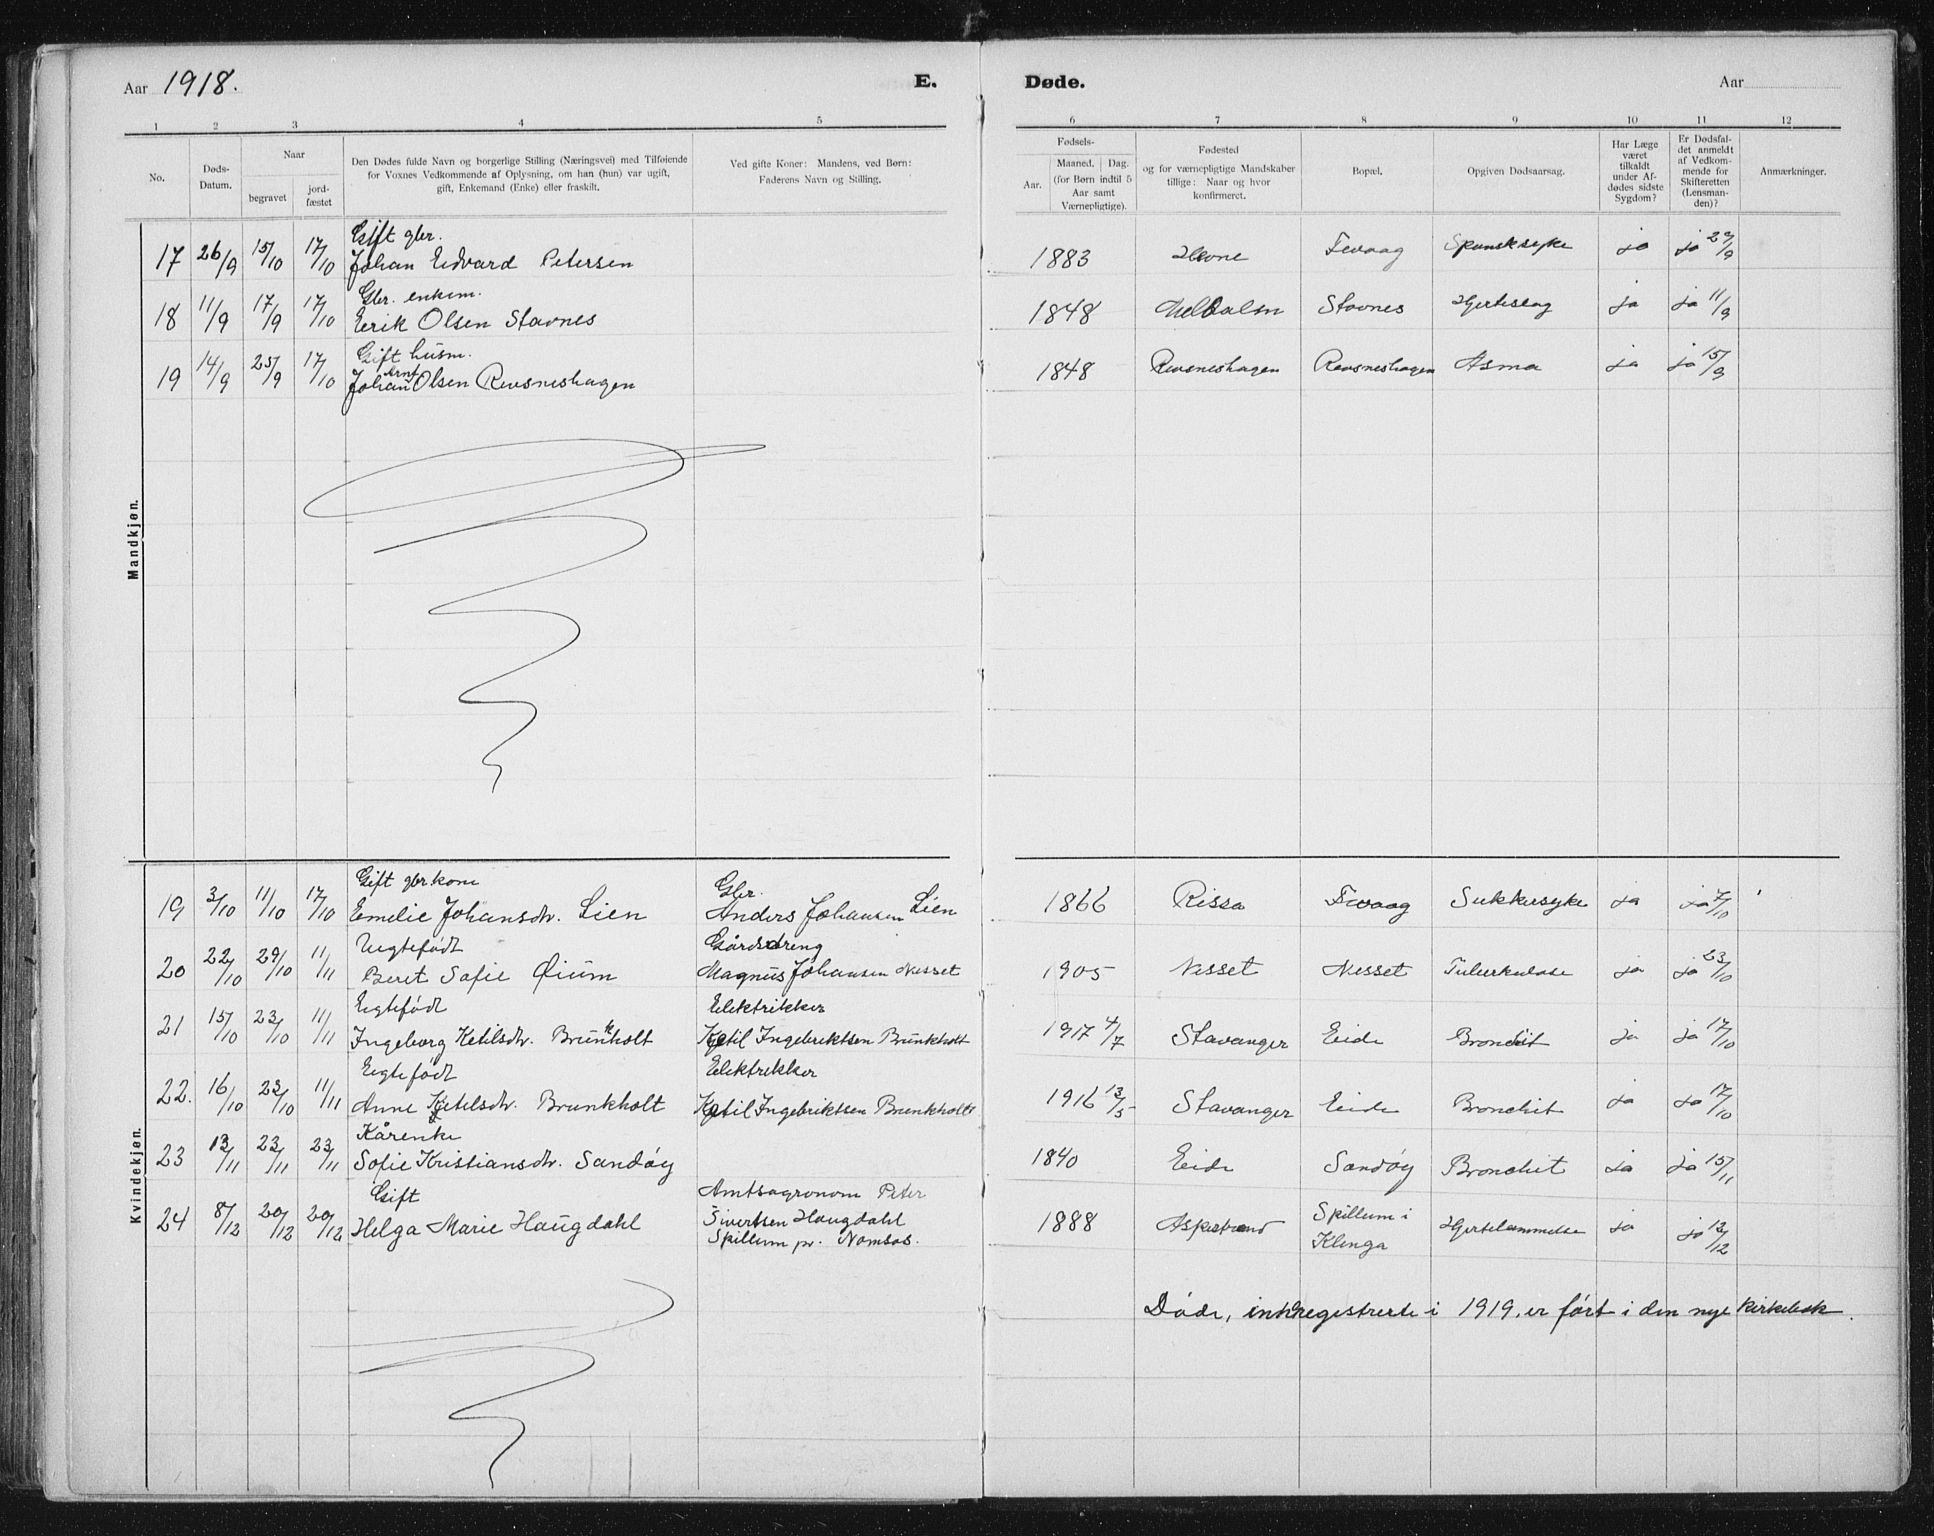 Aar 1918.
E.
Døde.
Aar
1 2 3 4 5 6 7 8 9 10 11 12
No.
Døds-
Datum.
Naar
begravet
jord-
fæstet
Den Dødes fulde Navn og borgerlige Stilling (Næringsvei) med Tilføiende
for Voxnes Vedkommende af Oplysning, om han (hun) var ugift,
gift, Enkemand (Enke) eller fraskilt.
Ved gifte Koner: Mandens, ved Børn:
Faderens Navn og Stilling.
Fødsels-
Aar.
Maaned. Dag.
(for Børn indtil 5
Aar samt
Værnepligtige).
Fødested
og for værnepligtige Mandskaber
tillige: Naar og hvor
konfirmeret.
Bopæl.
Opgiven Dødsaarsag.
Har Læge
været
tilkaldt
under Af-
dødes sidste
Sygdom?
Er Dødsfal-
det anmeldt
af Vedkom-
mende for
Skifteretten
(Lensman-
den)?
Anmærkninger.
Mandkjøn.
Gift gbr.
17 26/9 15/10 17/10 Johan Edvard Petersen 1883 Hevne Fevaag Spansksyke ja ja
Gbr. enkem.
18 11/9 17/9 17/10 Eerik Olsen Stavnes 1848 Stavnes Hjerteslag ja ja 11/9
Gift husm.
Arnt
19 14/9 25/9 17/10 Johan Olsen Revsneshagen 1848 Revsneshagen Revsneshagen Asma ja ja 15/9
Kvindekjøn.
Gift gbrkone Gbr.
19 3/10 11/10 17/10 Emilie Johansdtr. Lien Anders Johansen Lien 1866 Rissa Fevaag Sukkersyke ja ja 7/10
Uegtefødt Gårdsdreng
20 22/10 29/10 11/11 Beret Sofie Øium Magnus Johansen Nesset 1905 Nesset Nesset Tuberkulose ja ja 23/10
Egtefødt Elektrikker
21 15/10 23/10 11/11 Ingeborg Ketilsdtr. Brunkholt Kjetil Ingebriktsen Brunkholt 1917 4/7 Stavanger Eide Bronchit ja ja 17/10
Egtefødt Elektrikker
22. 16/10 23/10 11/11 Anne Kjetilsdtr. Brunkholt Kjetil Ingebriktsen Brunkholt 1916 13/5 Stavanger Eide Bronchit ja ja 17/10
Kårenke
23 13/11 23/11 23/11 Sofie Kristiansdtr. Sandøy 1840 Eide Sandøy Bronchit ja ja 15/11
Gift Amtsagronom Peter
24 8/12 20/12 20/12 Helga Marie Haugdahl Sivertsen Haugdahl 1888 Spillum i Hjertelammelse ja ja 13/12
Spillum pr. Namsos. Klinga
Døde, indregistrerte i 1919, er ført i den nye kirkebok.